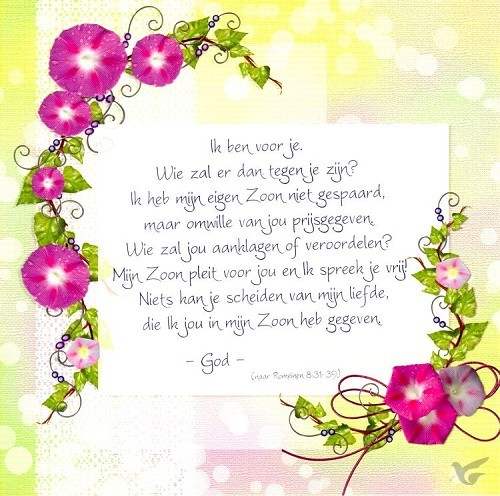 Ik ben voor je.
Wie zal er dan tegen je zijn?
Ik heb mijn eigen Zoon niet gespaard,
maar omwille van jou prijsgegeven.
Wie zal jou aanklagen of veroordelen?
Mijn Zoon pleit voor jou en Ik spreek je vrij!
Niets kan je scheiden van mijn liefde,
die Ik jou in mijn Zoon heb gegeven.
- God -
(naar Romeinen 8:31-39)